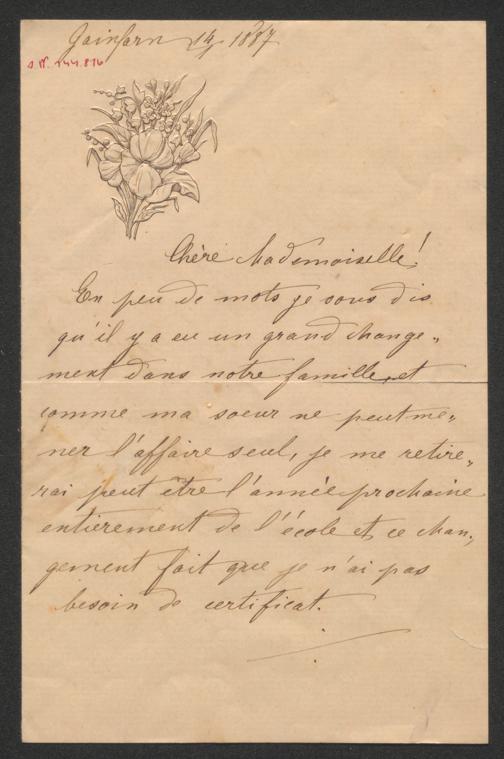 Gainfarn 14/1 1887
Chère Mademoiselle!
En peu de mots je vous dis
qu'il y a eu un grand change„
ment dans notre famille, et
comme ma soeur ne peut me„
ner l'affaire seul, je me retire„
rai peut être l'année prochaine
entièrement de l'école et ce chan„
gement fait que je n'ai pas
besoin de certificat.